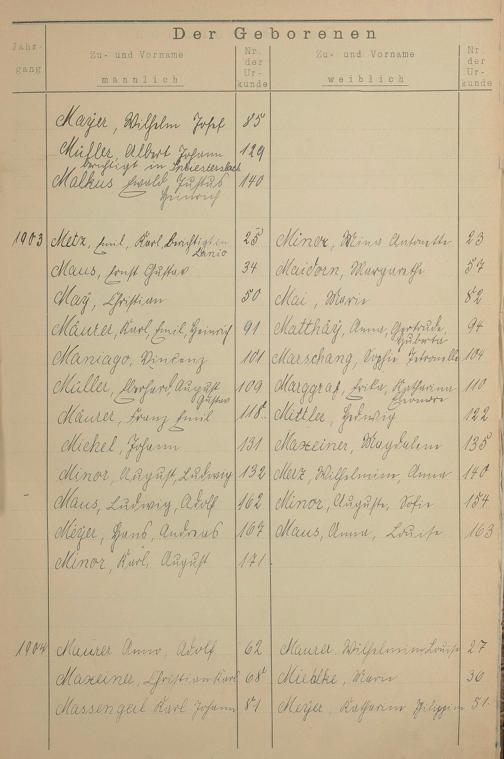 Der Geborenen
Jahr-
gang
Zu- und Vorname
männlich
Nr.
der
Ur-
kunde
Zu- und Vorname
weiblich
Nr.
der
Ur-
kunde
Mayer, Wilhelm Josef 85
Müller, Albert Johann 129
berichtigt in
Malkus Ewald Justus 140
Heinrich
1903 Metz, Emil, Karl, berichtigt in 25 Minor, Mina Antonette 23
Maus, Ernst Gustav 34 Maidorn, Margarethe 57
May, Christian 50 Mai, Marie 82
Maurer, Karl, Emil, Heinrich 91 Matthäy, Anna, Gertrude, 94
Huberta
Maniago, Vincenz 101 Marschang, Sophie Petronella 104
Müller, Gerhard, August 109 Marggraf, Erika, Katharina 110
Gustav
Maurer, Franz Emil 118 Mittler, Hedwig 122
Michel, Johann 131 Maxeiner, Magdalena 135
Minor, August, Ludwig 132 Metz, Wilhelmine, Anna 140
Maus, Ludwig, Adolf 162 Minor, Auguste, Sofie 154
Meyer, Hans, Andreas 167 Maus, Anna, Louise 163
Minor, Karl, August 171
1904 Maurer Anno, Adolf 62 Maurer Wilhelmine Louise 27
Maxeiner, Christian Karl 68 Miethke, Marie 30
Massengeil Karl Johann 81 Meyer, Katharina Philippine 51